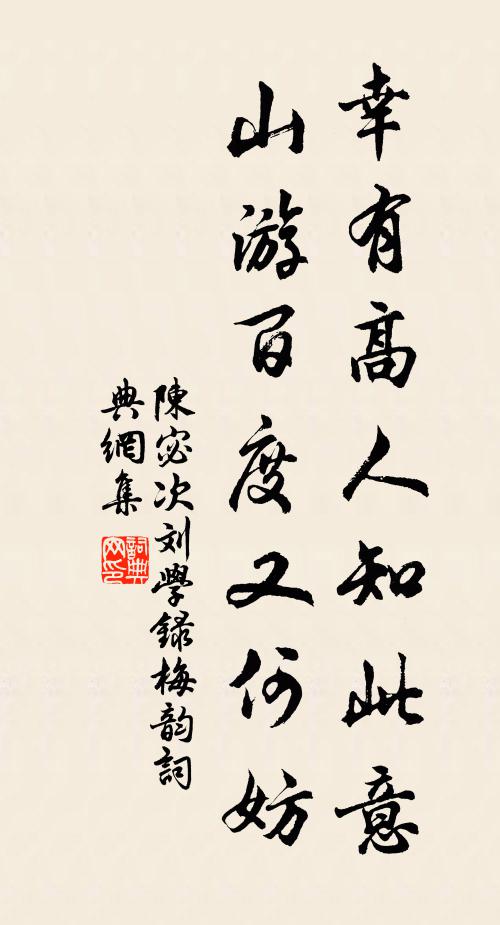 幸有高人知此意
山游百度又何妨
陳宓次刘學録梅韵詞
典網集
詞典
网印